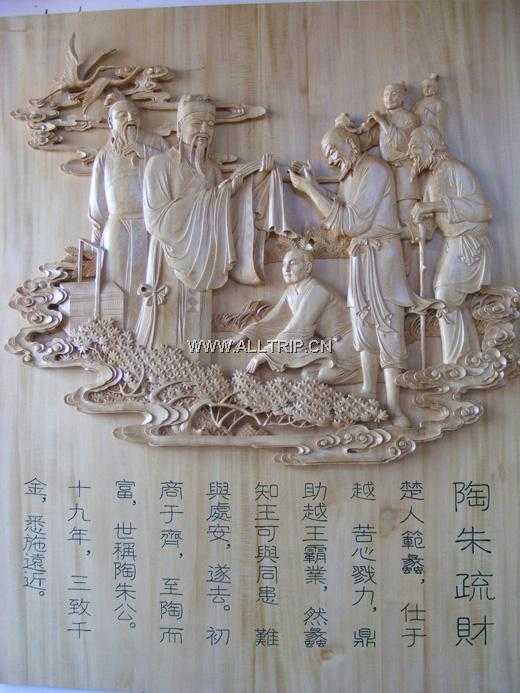 WWW.ALLTRIP.CN
陶朱疏財
楚人範蠡，仕于
越 苦心戮力，鼎
助越王霸業，然蠡
知王可與同患 難
與處安，遂去。初
商于齊，至陶而
富，世稱陶朱公。
十九年，三致千
金，悉施遠近。